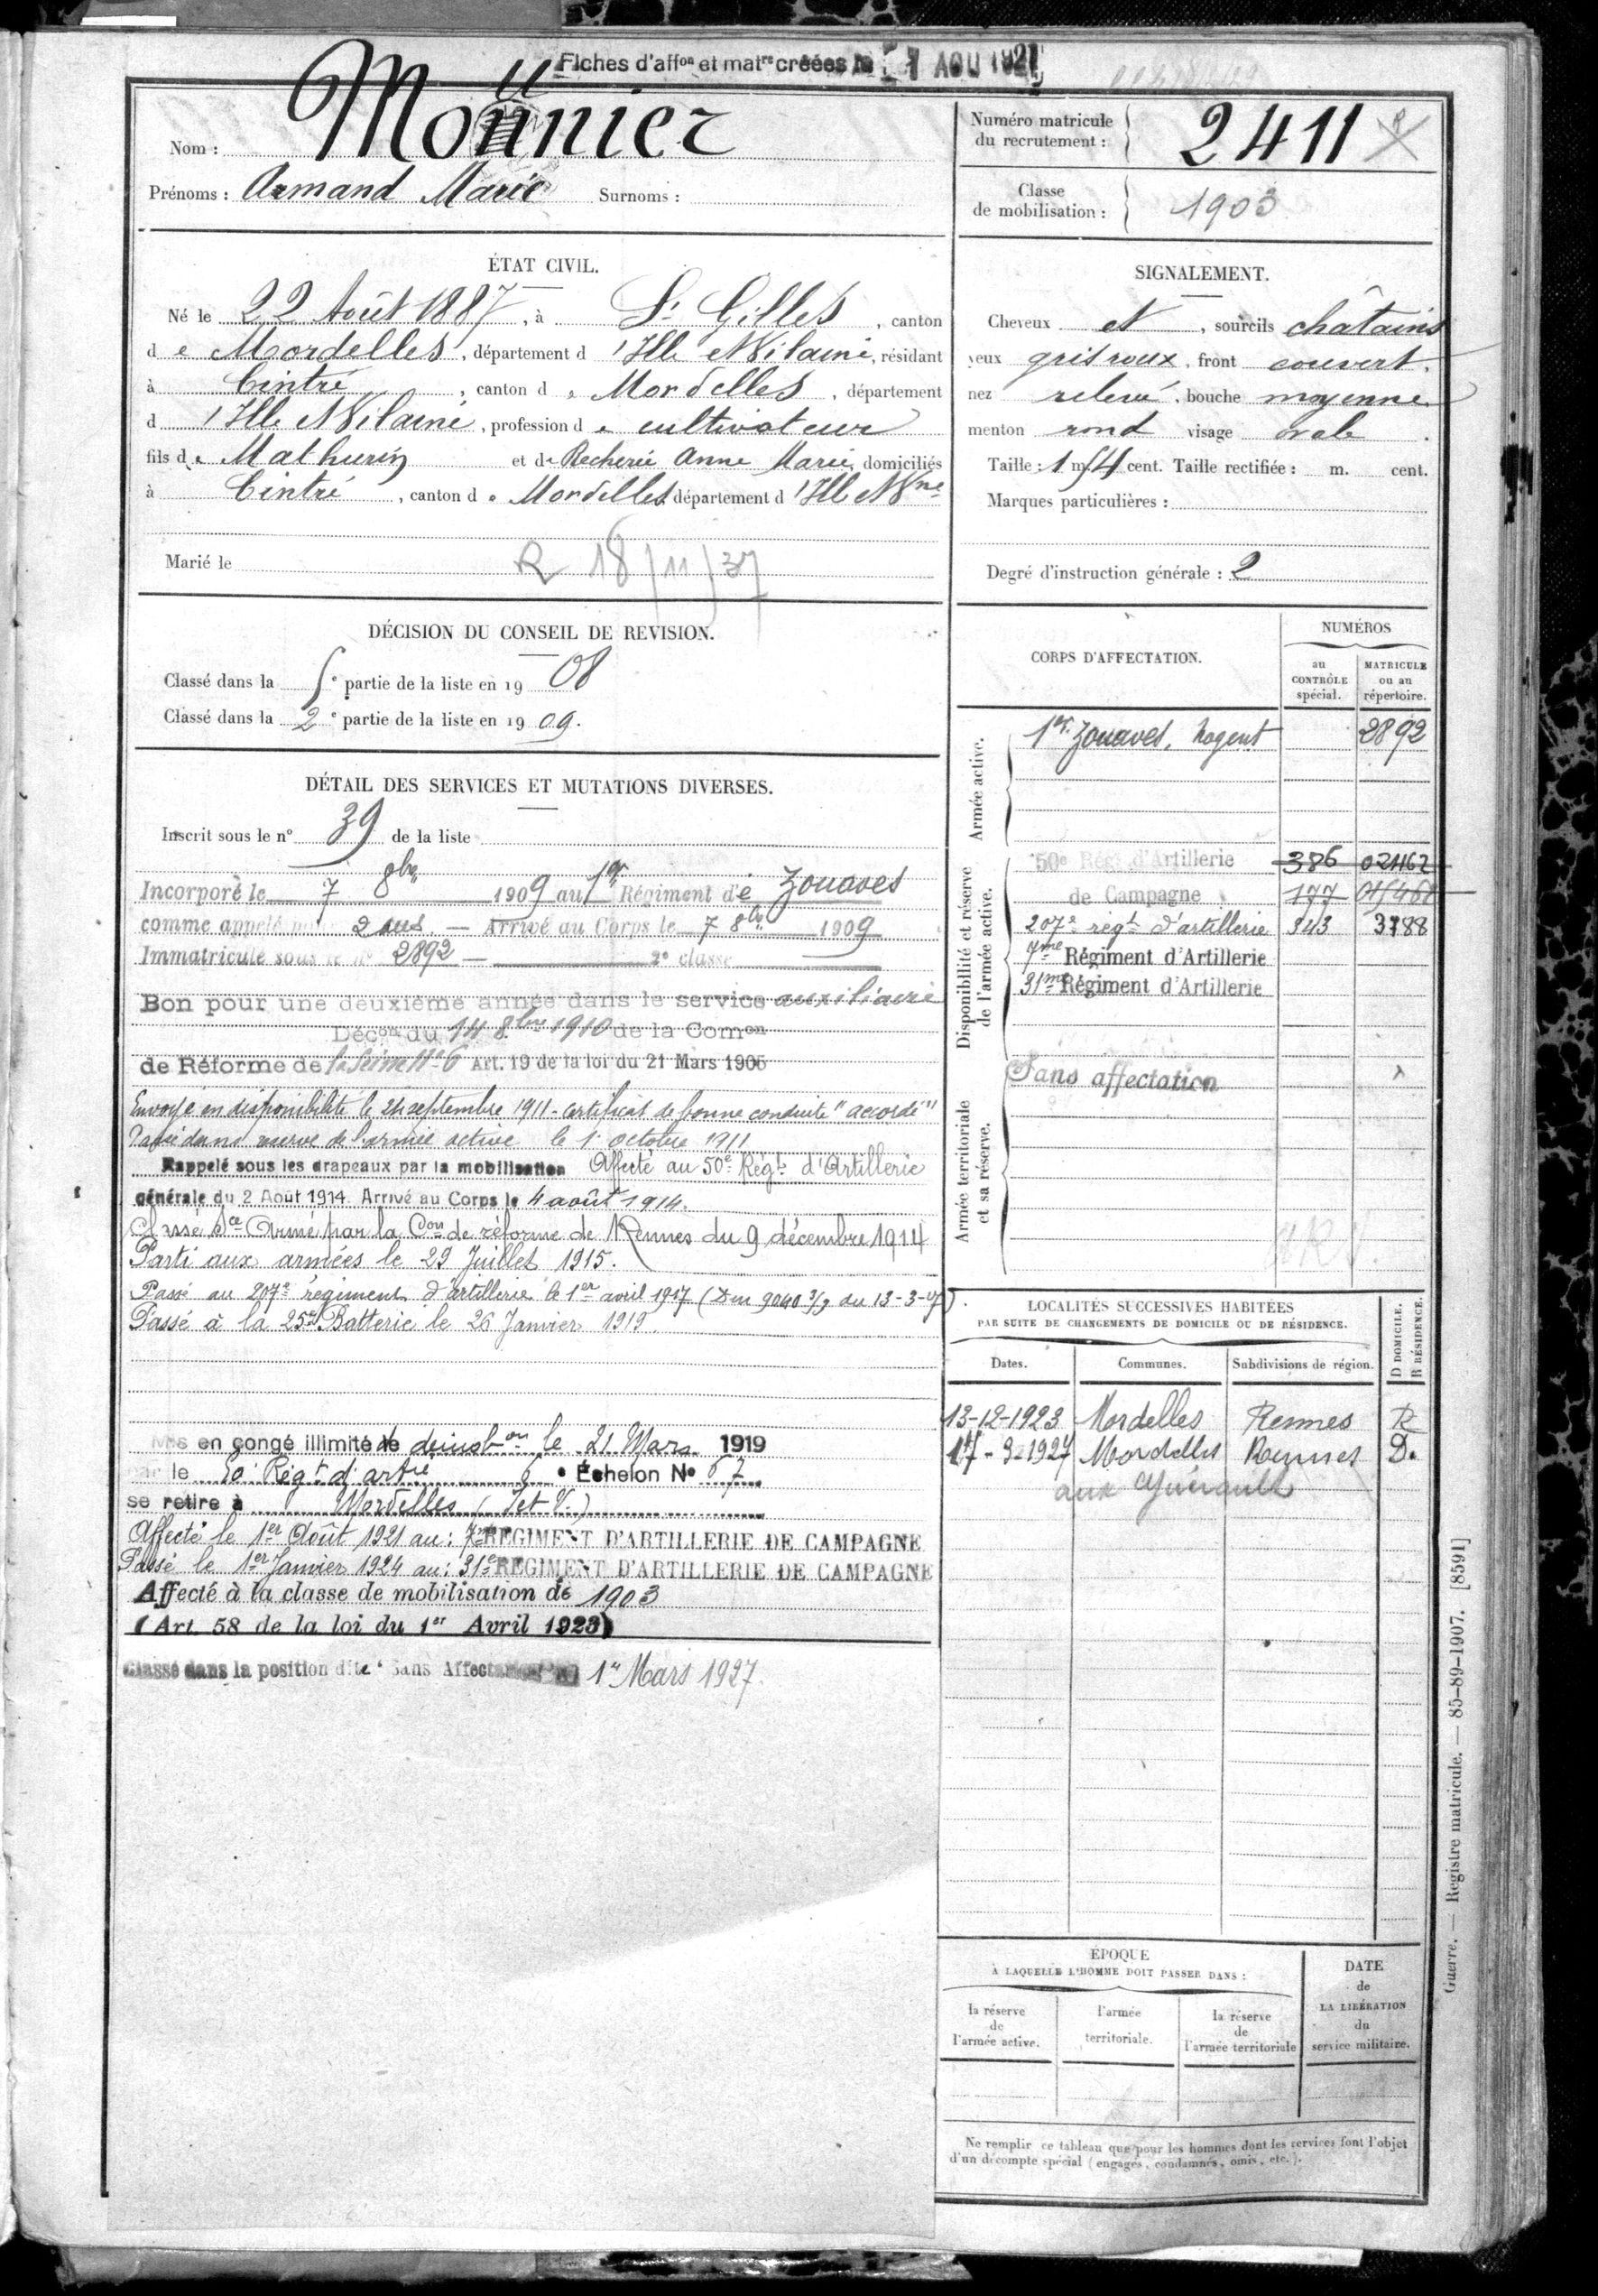 Fiches d'affon et matre créées le 1 AOU 1921
Nom : Mounier
Prénoms : Armand Marie Surnoms :
Numéro matricule
du recrutement : 2411
Classe
de mobilisation : 1903
ÉTAT CIVIL.
Né le 22 Août 1887, à St Gilles, canton
de Mordelles, département d'Ille & Vilaine, résidant
à Cintré, canton de Mordelles, département
d'Ille & Vilaine, profession de cultivateur
fils de Mathurin et de Recheré Anne Marie, domiciliés
à Cintré, canton de Mordelles département d'Ille & Vne
Marié le R 18/11/37
SIGNALEMENT.
Cheveux et, sourcils châtains
yeux gris roux, front couvert.
nez relevé, bouche moyenne
menton rond visage ovale.
Taille : 1 m 54 cent. Taille rectifiée : m. cent.
Marques particulières :
Degré d'instruction générale : 2
DÉCISION DU CONSEIL DE REVISION.
Classé dans la 5e partie de la liste en 1908
Classé dans la 2e partie de la liste en 1909.
DÉTAIL DES SERVICES ET MUTATIONS DIVERSES.
Inscrit sous le n° 39 de la liste
Incorporé le 7 8bre 1909 au 1er Régiment de Zouaves
comme appelé pour 2 ans. — Arrivé au Corps le 7 8bre 1909
Immatriculé sous le n° 2892 — 2e classe
Bon pour une deuxième année dans le service auxiliaire
Décon du 14 8bre 1910 de la Comon
de Réforme de la Seine N° 6 Art. 19 de la loi du 21 Mars 1905
Envoyé en disponibilité le 24 septembre 1911 - certificat de bonne conduite "accordé"
Passé dans réserve de l'armée active le 1 octobre 1911
Rappelé sous les drapeaux par la mobilisation Affecté au 50e Régt d'Artillerie
générale du 2 Août 1914. Arrivé au Corps le 4 août 1914.
Classé Sce Armé par la Con de réforme de Rennes du 9 décembre 1914
Parti aux armées le 29 Juillet 1915.
Passé au 207e régiment d'artillerie le 1er avril 1917 (Dm 9040 3/3 du 13-3-17).
Passé à la 25e Batterie le 26 Janvier 1919.
Mis en congé illimité de démobon le 21 Mars 1919
par le 50e Régt d'artie 6e Échelon N° 67
se retire à Mordelles (I et V.)
Affecté le 1er Août 1921 au : 7me RÉGIMENT D'ARTILLERIE DE CAMPAGNE
Passé le 1er Janvier 1924 au : 31e RÉGIMENT D'ARTILLERIE DE CAMPAGNE
Affecté à la classe de mobilisation de 1903
(Art. 58 de la loi du 1er Avril 1923)
Classé dans la position dite "Sans Affectation" 1er Mars 1927.
CORPS D'AFFECTATION.
NUMÉROS
au
CONTRÔLE
spécial.
MATRICULE
ou au
répertoire.
Armée active.
1er Zouaves, Nogent 2892
Disponibilité et réserve
de l'armée active.
50e Régt d'Artillerie 386 02462
de Campagne 177
207e régt d'artillerie 343 3788
7me Régiment d'Artillerie
31me Régiment d'Artillerie
Armée territoriale
et sa réserve.
Sans affectation
LOCALITÉS SUCCESSIVES HABITÉES
PAR SUITE DE CHANGEMENTS DE DOMICILE OU DE RÉSIDENCE.
Dates. Communes. Subdivisions de région. D DOMICILE. R RÉSIDENCE.
13-12-1923 Mordelles Rennes R
17-3-1927 Mordelles Rennes D.
aux
ÉPOQUE
À LAQUELLE L'HOMME DOIT PASSER DANS :
la réserve
de
l'armée active.
l'armée
territoriale.
la réserve
de
l'armée territoriale
DATE
de
LA LIBÉRATION
du
service militaire.
Ne remplir ce tableau que pour les hommes dont les services font l'objet
d'un décompte spécial (engagés, condamnés, omis, etc.).
Guerre. — Registre matricule. — 85-89-1907. [8591]